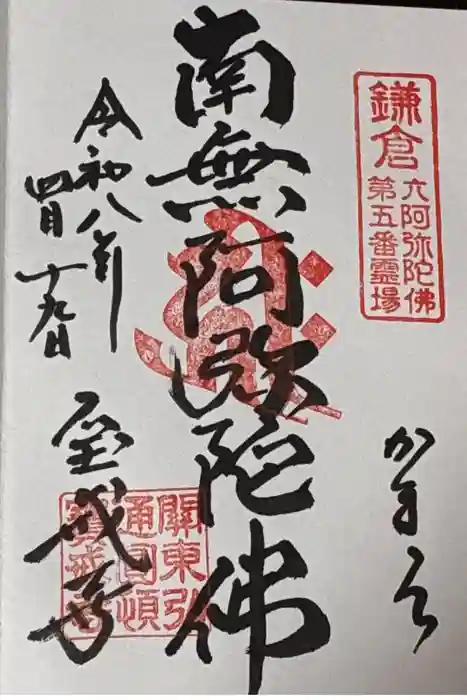 鎌倉
六阿弥陀佛
第五番霊場
かまくら
南無阿弥陀佛
令和八年
四月十九日
宝戒寺
關東弘
通圓頓
寶戒寺